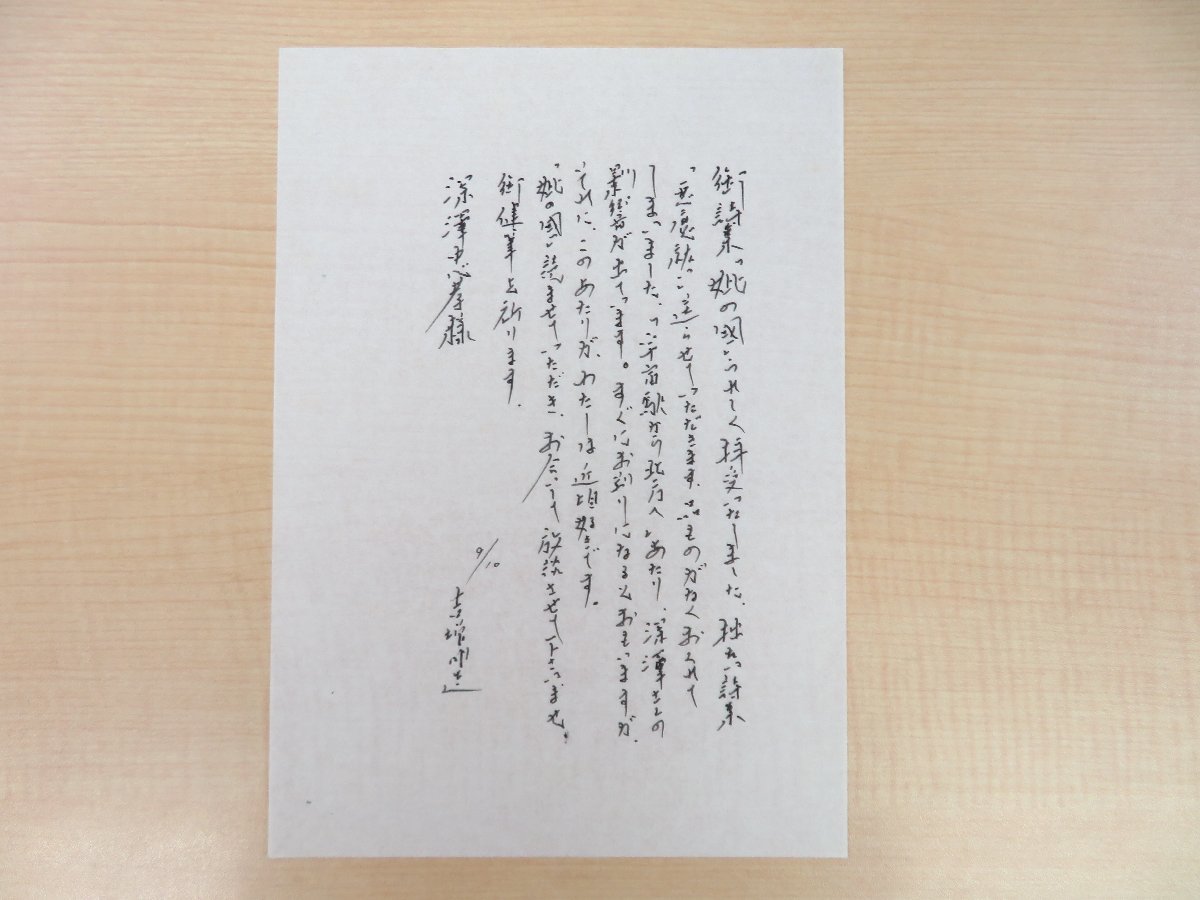 御詩集「妣の国」うれしく拝受いたしました、拙ない詩集
送らせていただきます、品ものがなくおくれて
しまいました、駅から北方へ」あたり、深澤さんの
業績が出ています。すぐにお判りになるとおもいますが、
それに、このあたりが、わたしは近頃好きです。
「妣の国」読ませていただき、お会いして放談させて下さいませ。
御健筆を祈ります、
深澤忠孝様
9/10